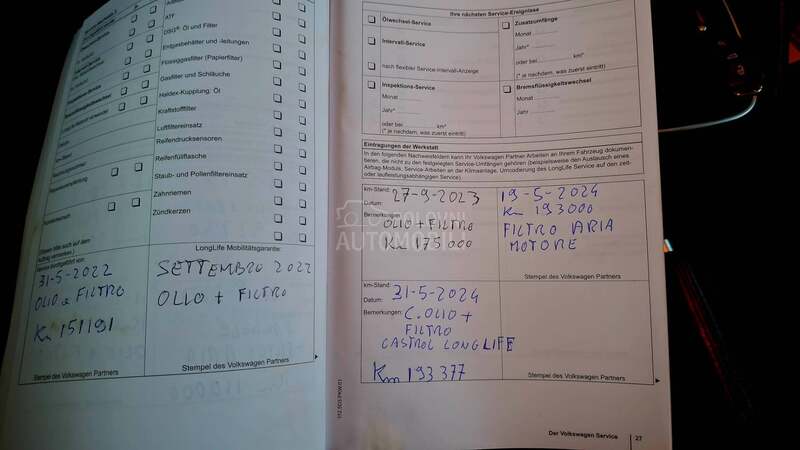 ATF
DSG® Öl und Filter
Erdgasbehälter und -leitungen
Flüssiggasfilter (Papierfilter)
Gasfilter und Schläuche
Haldex-Kupplung: Öl
Kraftstofffilter
Luftfiltereinsatz
Reifendrucksensoren
Reifenfüllflasche
Staub- und Pollenfiltereinsatz
Zahnriemen
Zündkerzen
(Diesen bitte auch auf dem
Auftrag vermerken.)
Service durchgeführt von:
31-5-2022
OLIO e FILTRO
Km 151191
Stempel des Volkswagen Partners
LongLife Mobilitätsgarantie:
SETTEMBRO 2022
OLIO + FILTRO
Stempel des Volkswagen Partners
Ihre nächsten Service-Ereignisse
Ölwechsel-Service
Intervall-Service
nach flexibler Service-Intervall-Anzeige
Inspektions-Service
Monat
Jahr*
oder bei km*
(* je nachdem, was zuerst eintritt)
Zusatzumfänge
Monat
Jahr*
oder bei km*
(* je nachdem, was zuerst eintritt)
Bremsflüssigkeitswechsel
Monat
Jahr
Eintragungen der Werkstatt
In den folgenden Nachweisfeldern kann Ihr Volkswagen Partner Arbeiten an Ihrem Fahrzeug dokumen-
tieren, die nicht zu den festgelegten Service-Umfängen gehören (beispielsweise den Austausch eines
Airbag-Moduls, Service-Arbeiten an der Klimaanlage, Umcodierung des LongLife Service auf den zeit-
oder laufleistungsabhängigen Service).
km-Stand:
Datum: 27-9-2023
Bemerkungen:
OLIO + FILTRO
Km 175000
19-5-2024
Km 193000
FILTRO ARIA
MOTORE
Stempel des Volkswagen Partners
km-Stand:
Datum: 31-5-2024
Bemerkungen: C.OLIO +
FILTRO
CASTROL LONGLIFE
Km 193377
Stempel des Volkswagen Partners
Der Volkswagen Service 27
POLOVNI
AUTOMOBILI